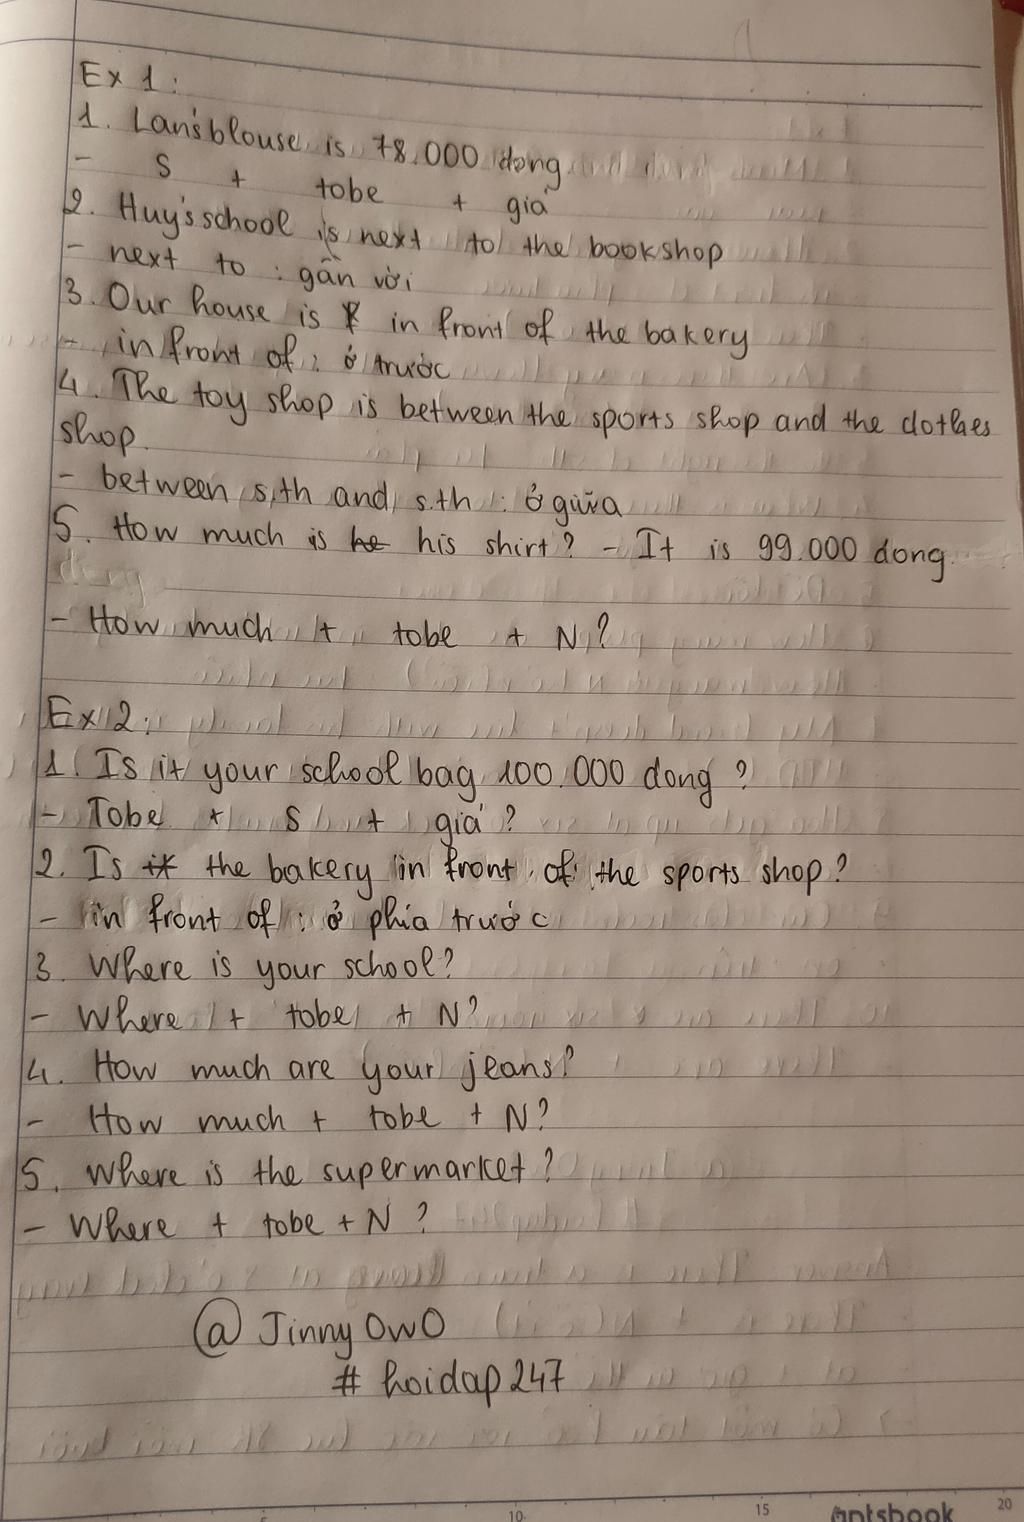 Ex 1:
1. Lan's blouse is 78.000 dong
- S + tobe + giá
2. Huy's school is next to the bookshop
- next to : gần với
3. Our house is in front of the bakery
- in front of : ở trước
4. The toy shop is between the sports shop and the clothes
shop.
- between s.th and s.th : ở giữa
5. How much is he his shirt? - It is 99.000 dong
dong
- How much + tobe + N?
Ex 2:
1. Is it your school bag 100.000 dong ?
- Tobe + S + giá ?
2. Is it the bakery in front of the sports shop?
- in front of : ở phía trước
3. Where is your school?
- Where + tobe + N?
4. How much are your jeans?
- How much + tobe + N?
5. Where is the supermarket ?
- Where + tobe + N ?
@ Jinny OwO
# hoidap247
10 15 20
antsbook